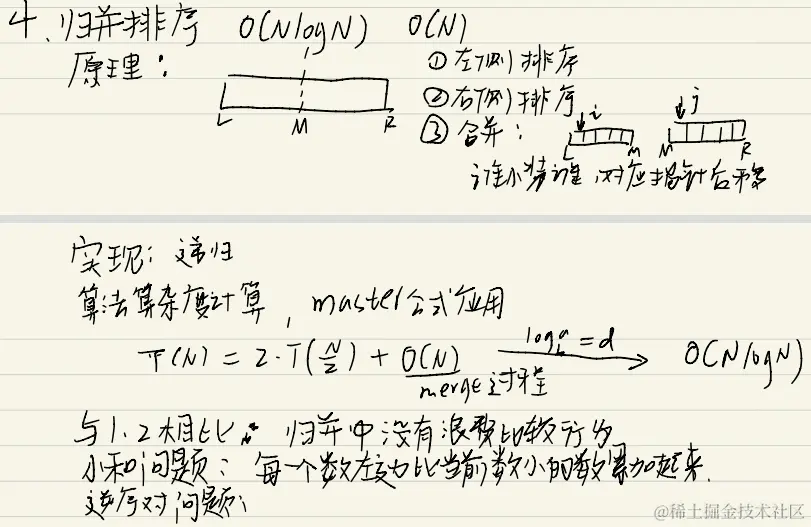 4、归并排序 O(NlogN) O(N)
原理:
L M R
①左侧排序
②右侧排序
③合并:
i j
L M M R
谁小装谁,对应指针后移
实现:递归
算法算杂度计算,master公式应用
T(N) = 2·T(N/2) + O(N) log_b^a = d O(NlogN)
merge过程
与1.2相比: 归并中没有浪费比较行为
小和问题:每一个数左边比当前数小的数累加起来.
逆序对问题:
@稀土掘金技术社区